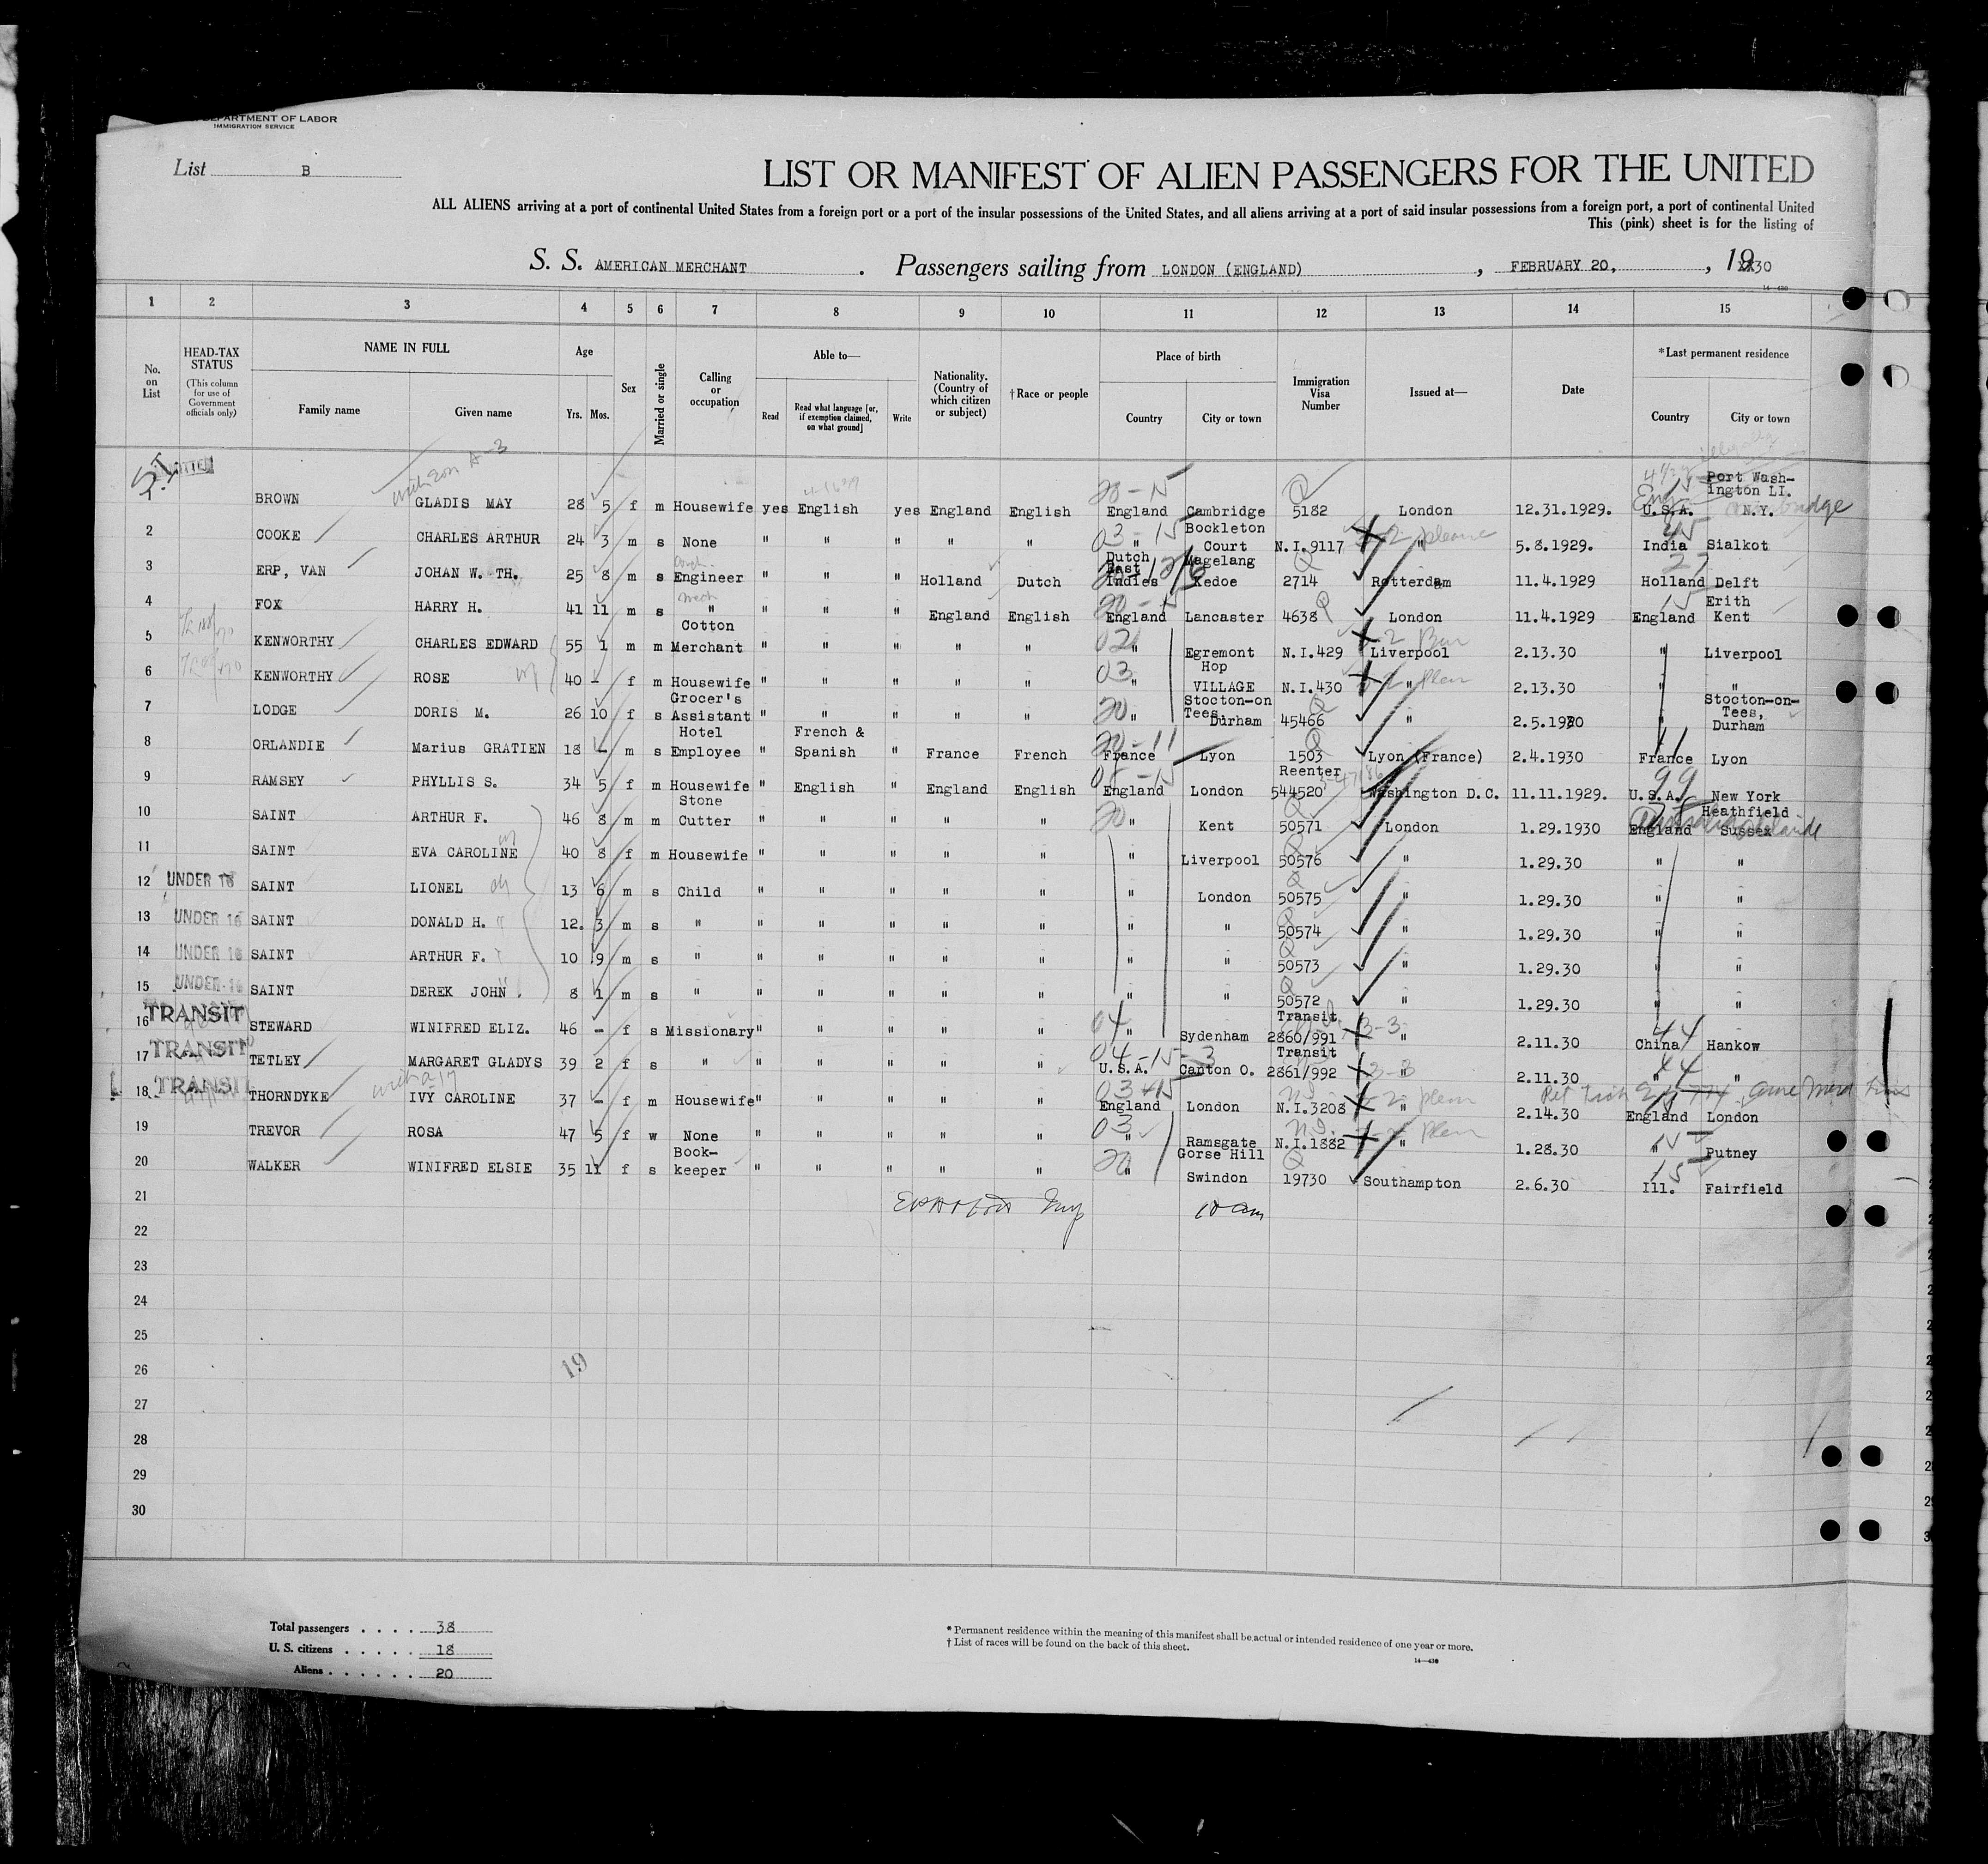 DEPARTMENT OF LABOR
IMMIGRATION SERVICE
List B
LIST OR MANIFEST OF ALIEN PASSENGERS FOR THE UNITED
ALL ALIENS arriving at a port of continental United States from a foreign port or a port of the insular possessions of the United States, and all aliens arriving at a port of said insular possessions from a foreign port, a port of continental United
This (pink) sheet is for the listing of
S. S. AMERICAN MERCHANT . Passengers sailing from LONDON (ENGLAND) , FEBRUARY 20, , 19 30
14—430
1 2 3 4 5 6 7 8 9 10 11 12 13 14 15
No. on List
HEAD-TAX STATUS (This column for use of Government officials only)
NAME IN FULL
Family name Given name
Age
Yrs. Mos.
Sex
Married or single
Calling or occupation
Able to—
Read
Read what language [or, if exemption claimed, on what ground]
Write
Nationality. (Country of which citizen or subject)
† Race or people
Place of birth
Country City or town
Immigration Visa Number
Issued at—
Date
* Last permanent residence
Country City or town
BROWN GLADIS MAY 28 5 f m Housewife yes English yes England English England Cambridge 5182 London 12.31.1929. U.S.A. Port Wash-ington LI. N.Y.
2 COOKE CHARLES ARTHUR 24 3 m s None " " " " " " Bockleton Court N.I.9117 " 5.8.1929. India Sialkot
3 ERP, VAN JOHAN W. TH. 25 8 m s Engineer " " " Holland Dutch Dutch East Indies Magelang Kedoe 2714 Rotterdam 11.4.1929 Holland Delft
4 FOX HARRY H. 41 11 m s " " " " England English England Lancaster 4638 London 11.4.1929 England Erith Kent
5 KENWORTHY CHARLES EDWARD 55 1 m m Cotton Merchant " " " " " " Egremont N.I.429 Liverpool 2.13.30 " Liverpool
6 KENWORTHY ROSE 40 - f m Housewife " " " " " " Hop VILLAGE N.I.430 " 2.13.30 " "
7 LODGE DORIS M. 26 10 f s Grocer's Assistant " " " " " " Stocton-on Tees, Durham 45466 " 2.5.1930 " Stocton-on-Tees, Durham
8 ORLANDIE Marius GRATIEN 18 - m s Hotel Employee " French & Spanish " France French France Lyon 1503 Lyon (France) 2.4.1930 France Lyon
9 RAMSEY PHYLLIS S. 34 5 f m Housewife " English " England English England London Reenter 544520 Washington D.C. 11.11.1929. U.S.A. New York
10 SAINT ARTHUR F. 46 8 m m Stone Cutter " " " " " " Kent 50571 London 1.29.1930 England Heathfield Sussex
11 SAINT EVA CAROLINE 40 8 f m Housewife " " " " " " Liverpool 50576 " 1.29.30 " "
12 UNDER 16 SAINT LIONEL 13 6 m s Child " " " " " " London 50575 " 1.29.30 " "
13 UNDER 16 SAINT DONALD H. 12. 3 m s " " " " " " " " 50574 " 1.29.30 " "
14 UNDER 16 SAINT ARTHUR F. 10 9 m s " " " " " " " " 50573 " 1.29.30 " "
15 UNDER 16 SAINT DEREK JOHN . 8 1 m s " " " " " " " " 50572 " 1.29.30 " "
16 TRANSIT STEWARD WINIFRED ELIZ. 46 - f s Missionary " " " " " " Sydenham Transit 2860/991 " 2.11.30 China Hankow
17 TRANSIT TETLEY MARGARET GLADYS 39 2 f s " " " " " " U.S.A. Canton O. Transit 2861/992 " 2.11.30 " "
18 TRANSIT THORNDYKE IVY CAROLINE 37 - f m Housewife " " " " " England London N.I.3208 " 2.14.30 England London
19 TREVOR ROSA 47 5 f w None " " " " " " Ramsgate N.I.1882 " 1.28.30 " Putney
20 WALKER WINIFRED ELSIE 35 11 f s Book-keeper " " " " " " Gorse Hill Swindon 19730 Southampton 2.6.30 Ill. Fairfield
21
22
23
24
25
26
27
28
29
30
19
Total passengers . . . . 38
U. S. citizens . . . . . 18
Aliens . . . . . . 20
* Permanent residence within the meaning of this manifest shall be actual or intended residence of one year or more.
† List of races will be found on the back of this sheet.
14—430